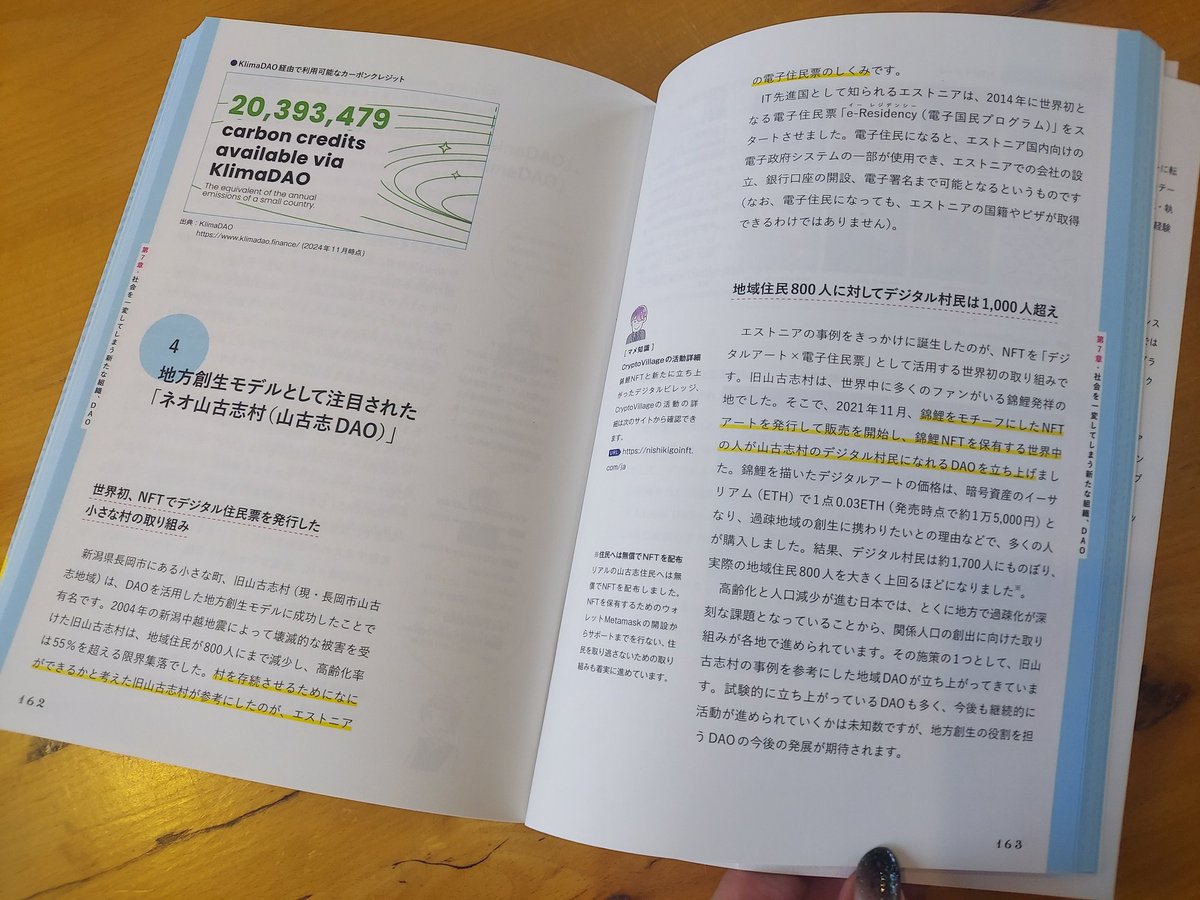 ●KlimaDAO経由で利用可能なカーボンクレジット
20,393,479
carbon credits
available via
KlimaDAO
The equivalent of the annual
emissions of a small country.
出典：KlimaDAO
https://www.klimadao.finance/（2024年11月時点）
第7章・社会を一変してしまう新たな組織、DAO
4
地方創生モデルとして注目された
「ネオ山古志村（山古志DAO）」
世界初、NFTでデジタル住民票を発行した
小さな村の取り組み
新潟県長岡市にある小さな町、旧山古志村（現・長岡市山古
志地域）は、DAOを活用した地方創生モデルに成功したことで
有名です。2004年の新潟中越地震によって壊滅的な被害を受
けた旧山古志村は、地域住民が800人にまで減少し、高齢化率
は55％を超える限界集落でした。村を存続させるためになに
ができるかと考えた旧山古志村が参考にしたのが、エストニア
162
の電子住民票のしくみです。
IT先進国として知られるエストニアは、2014年に世界初と
イー レジデンシー
なる電子住民票「e-Residency（電子国民プログラム）」をス
タートさせました。電子住民になると、エストニア国内向けの
電子政府システムの一部が使用でき、エストニアでの会社の設
立、銀行口座の開設、電子署名まで可能となるというものです
（なお、電子住民になっても、エストニアの国籍やビザが取得
できるわけではありません）。
地域住民800人に対してデジタル村民は1,000人超え
エストニアの事例をきっかけに誕生したのが、NFTを「デジ
タルアート×電子住民票」として活用する世界初の取り組みで
す。旧山古志村は、世界中に多くのファンがいる錦鯉発祥の
地でした。そこで、2021年11月、錦鯉をモチーフにしたNFT
アートを発行して販売を開始し、錦鯉NFTを保有する世界中
の人が山古志村のデジタル村民になれるDAOを立ち上げまし
た。錦鯉を描いたデジタルアートの価格は、暗号資産のイーサ
リアム（ETH）で1点0.03ETH（発売時点で約1万5,000円）と
なり、過疎地域の創生に携わりたいとの理由などで、多くの人
が購入しました。結果、デジタル村民は約1,700人にものぼり、
実際の地域住民800人を大きく上回るほどになりました※。
高齢化と人口減少が進む日本では、とくに地方で過疎化が深
刻な課題となっていることから、関係人口の創出に向けた取り
組みが各地で進められています。その施策の1つとして、旧山
古志村の事例を参考にした地域DAOが立ち上がってきていま
す。試験的に立ち上がっているDAOも多く、今後も継続的に
活動が進められていくかは未知数ですが、地方創生の役割を担
うDAOの今後の発展が期待されます。
［マメ知識］
CryptoVillageの活動詳細
錦鯉NFTと新たに立ち上
がったデジタルビレッジ、
CryptoVillageの活動の詳
細は次のサイトから確認でき
ます。
URL https://nishikigoinft.
com/ja
※住民へは無償でNFTを配布
リアルの山古志住民へは無
償でNFTを配布しました。
NFTを保有するためのウォ
レットMetamaskの開設か
らサポートまでを行ない、住
民を取り逃さないための取り
組みも着実に進めています。
第7章・社会を一変してしまう新たな組織、DAO
163